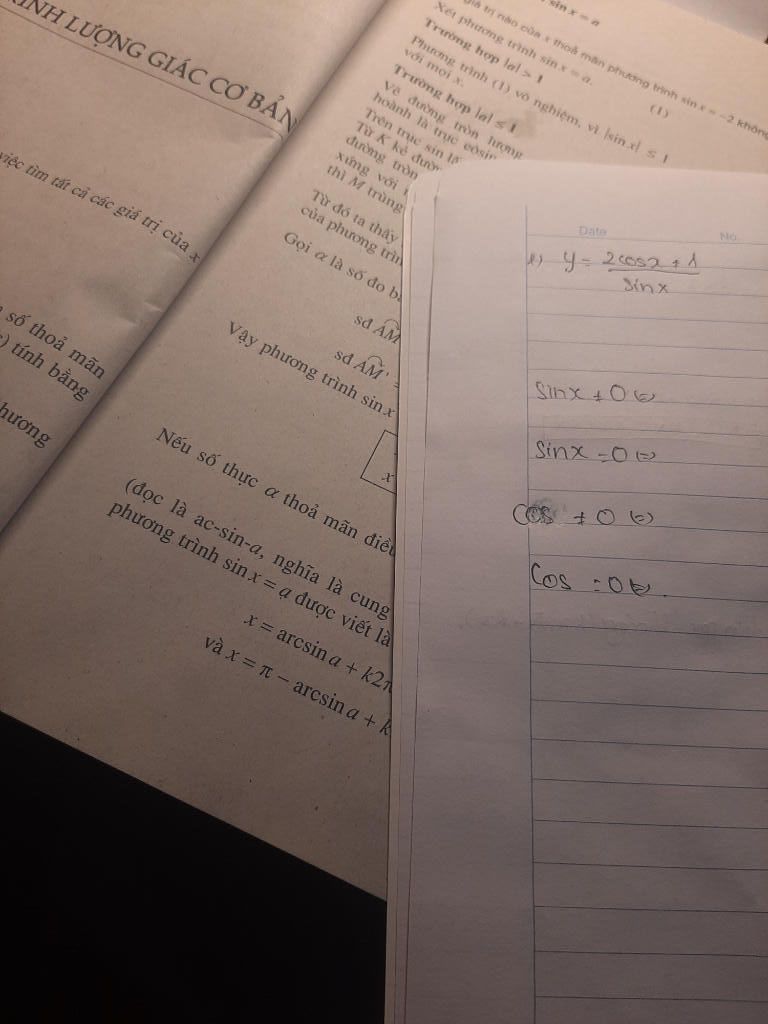 ÌNH LƯỢNG GIÁC CƠ BẢN
việc tìm tất cả các giá trị của x
số thoả mãn
) tính bằng
hương
sin x = a
giá trị nào của x thoả mãn phương trình sin x = -2 không
Xét phương trình sin x = a. (1)
Trường hợp |a| > 1
Phương trình (1) vô nghiệm, vì |sin x| ≤ 1
với mọi x.
Trường hợp |a| ≤ 1
Vẽ đường tròn lượng
hoành là trục côsin
Trên trục sin lấ
Từ K kẻ đườ
đường tròn
xứng với
thì M trùng
Từ đó ta thấy
của phương trìn
Gọi α là số đo b
sđ AM
sđ AM' =
Vậy phương trình sin x
x
Nếu số thực α thoả mãn điều
(đọc là ac-sin-a, nghĩa là cung
phương trình sin x = a được viết là
x = arcsin a + k2π
và x = π − arcsin a + k
Date No.
y = \frac{2cosx + 1}{sinx}
sinx ≠ 0 ⇔
sinx = 0 ⇔
cos ≠ 0 ⇔
cos = 0 ⇔.